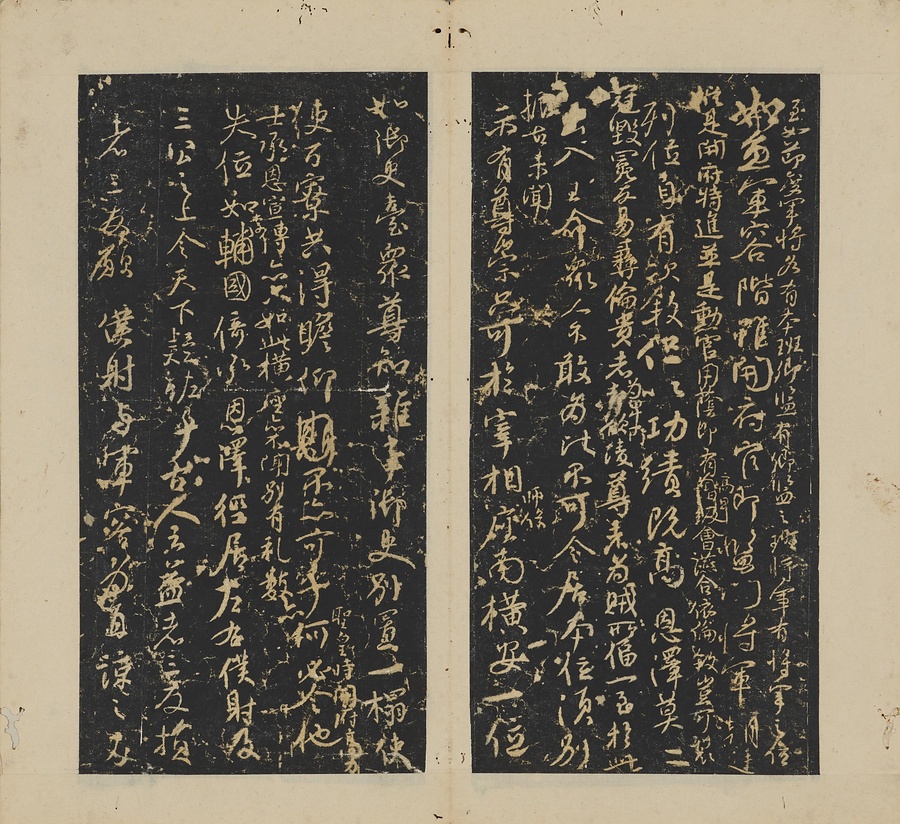 至如節度軍將各有本班卿監有卿監之班將軍有將軍之位
如魚軍容階雖開府官即監門將軍朝廷
縱是開府特進並是勳官用蔭即有高卑會讌合依倫敘豈可裂
列位自有次敘但以功績既高恩澤莫二
冠毀冕反易彝倫貴者為卑所凌尊者為賊所偪一至於此
出入王命眾人不敢為比不可令居本位須別
振古未聞
示有尊崇只可於宰相師保座南橫安一位
如御史臺眾尊知雜事御史別置一榻使
使百寮共得瞻仰不亦可乎何必令他
聖皇時開府高力
士承恩宣傳亦只如此橫座亦不聞別有禮數亦
失位如李輔國倚承恩澤徑居左右僕射及
三公之上令天下疑怪乎古人云益者三友損
者三友願僕射與軍容為直諒之友